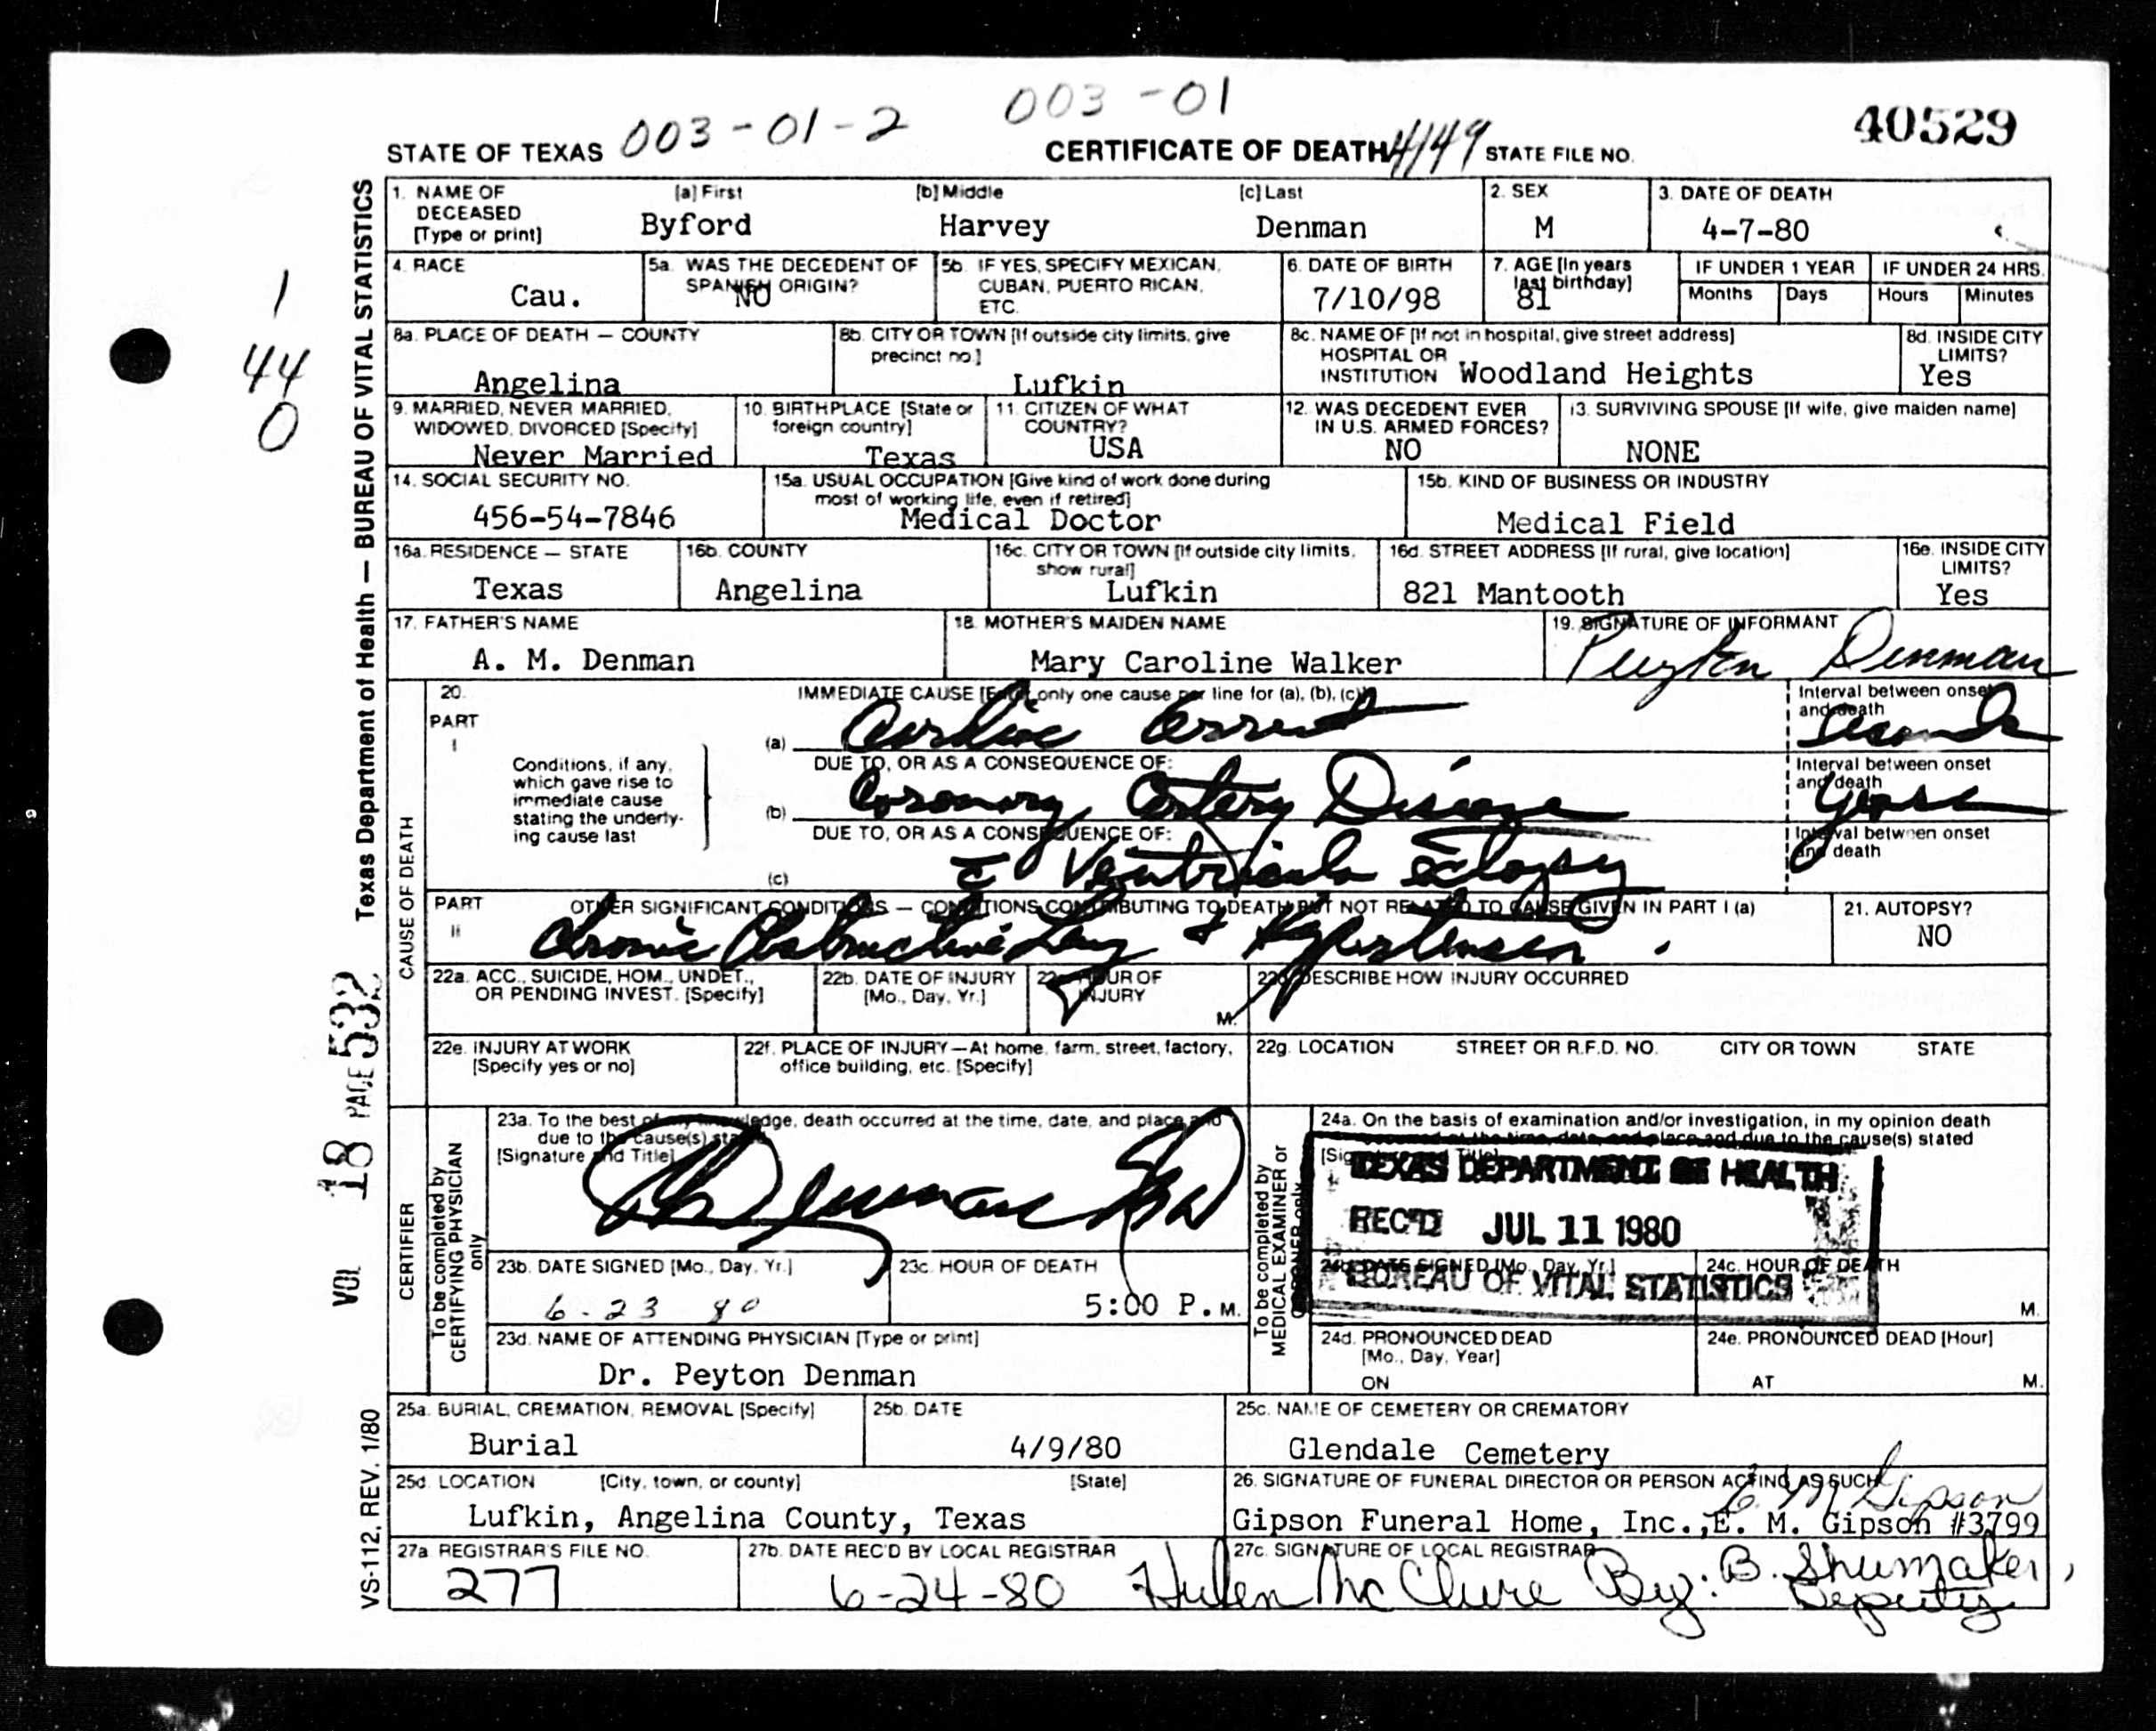 003-01-2 003-01
40529
STATE OF TEXAS CERTIFICATE OF DEATH 4149 STATE FILE NO.
1
44
0
Texas Department of Health — BUREAU OF VITAL STATISTICS
VOL 18 PAGE 532
VS-112, REV. 1/80
1. NAME OF DECEASED [Type or print] [a] First [b] Middle [c] Last 2. SEX 3. DATE OF DEATH
Byford Harvey Denman M 4-7-80
4. RACE 5a. WAS THE DECEDENT OF SPANISH ORIGIN? 5b. IF YES, SPECIFY MEXICAN, CUBAN, PUERTO RICAN, ETC. 6. DATE OF BIRTH 7. AGE [In years last birthday] IF UNDER 1 YEAR IF UNDER 24 HRS.
Months Days Hours Minutes
Cau. NO 7/10/98 81
8a. PLACE OF DEATH — COUNTY 8b. CITY OR TOWN [If outside city limits, give precinct no.] 8c. NAME OF [If not in hospital, give street address] HOSPITAL OR INSTITUTION 8d. INSIDE CITY LIMITS?
Angelina Lufkin Woodland Heights Yes
9. MARRIED, NEVER MARRIED, WIDOWED, DIVORCED [Specify] 10. BIRTHPLACE [State or foreign country] 11. CITIZEN OF WHAT COUNTRY? 12. WAS DECEDENT EVER IN U.S. ARMED FORCES? 13. SURVIVING SPOUSE [If wife, give maiden name]
Never Married Texas USA NO NONE
14. SOCIAL SECURITY NO. 15a. USUAL OCCUPATION [Give kind of work done during most of working life, even if retired] 15b. KIND OF BUSINESS OR INDUSTRY
456-54-7846 Medical Doctor Medical Field
16a. RESIDENCE — STATE 16b. COUNTY 16c. CITY OR TOWN [If outside city limits, show rural] 16d. STREET ADDRESS [If rural, give location] 16e. INSIDE CITY LIMITS?
Texas Angelina Lufkin 821 Mantooth Yes
17. FATHER'S NAME 18. MOTHER'S MAIDEN NAME 19. SIGNATURE OF INFORMANT
A. M. Denman Mary Caroline Walker Peyton Denman
CAUSE OF DEATH
20. PART I IMMEDIATE CAUSE [Enter only one cause per line for (a), (b), (c)] Interval between onset and death
Conditions, if any, which gave rise to immediate cause stating the underlying cause last
(a) Cardiac Arrest Seconds
DUE TO, OR AS A CONSEQUENCE OF: Interval between onset and death
(b) Coronary Artery Disease Years
DUE TO, OR AS A CONSEQUENCE OF: Interval between onset and death
(c) c̄ Ventricular Ectopy
PART II OTHER SIGNIFICANT CONDITIONS — CONDITIONS CONTRIBUTING TO DEATH BUT NOT RELATED TO CAUSE GIVEN IN PART I (a) 21. AUTOPSY?
Chronic Obstructive Lung + Hypertension. NO
22a. ACC., SUICIDE, HOM., UNDET., OR PENDING INVEST. [Specify] 22b. DATE OF INJURY [Mo., Day, Yr.] 22c. HOUR OF INJURY M. 22d. DESCRIBE HOW INJURY OCCURRED
22e. INJURY AT WORK [Specify yes or no] 22f. PLACE OF INJURY—At home, farm, street, factory, office building, etc. [Specify] 22g. LOCATION STREET OR R.F.D. NO. CITY OR TOWN STATE
CERTIFIER
To be completed by CERTIFYING PHYSICIAN only
23a. To the best of my knowledge, death occurred at the time, date, and place and due to the cause(s) stated
[Signature and Title]
Denman MD
23b. DATE SIGNED [Mo., Day, Yr.] 23c. HOUR OF DEATH
6-23 80 5:00 P. M.
23d. NAME OF ATTENDING PHYSICIAN [Type or print]
Dr. Peyton Denman
To be completed by MEDICAL EXAMINER or CORONER only
24a. On the basis of examination and/or investigation, in my opinion death occurred at the time, date, and place and due to the cause(s) stated
[Signature and Title]
TEXAS DEPARTMENT OF HEALTH
REC'D JUL 11 1980
BUREAU OF VITAL STATISTICS
24b. DATE SIGNED [Mo., Day, Yr.] 24c. HOUR OF DEATH M.
24d. PRONOUNCED DEAD [Mo., Day, Year] ON 24e. PRONOUNCED DEAD [Hour] AT M.
25a. BURIAL, CREMATION, REMOVAL [Specify] 25b. DATE 25c. NAME OF CEMETERY OR CREMATORY
Burial 4/9/80 Glendale Cemetery
25d. LOCATION [City, town, or county] [State] 26. SIGNATURE OF FUNERAL DIRECTOR OR PERSON ACTING AS SUCH
E. M. Gipson
Lufkin, Angelina County, Texas Gipson Funeral Home, Inc.,E. M. Gipson #3799
27a. REGISTRAR'S FILE NO. 27b. DATE REC'D BY LOCAL REGISTRAR 27c. SIGNATURE OF LOCAL REGISTRAR
277 6-24-80 Hulen McClure By: B. Shumaker, Deputy